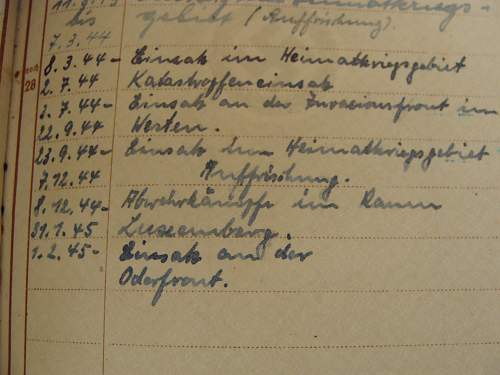 bis gebiet (Auffrischung).
7.3.44
8.3.44- Einsatz im Heimatkriegsgebiet
2.7.44 Katastropfeneinsatz
3.7.44- Einsatz an der Invasionsfront im
22.9.44 Westen.
23.9.44- Einsatz im Heimatkriegsgebiet
7.12.44 Auffrischung.
8.12.44- Abwehrkämpfe im Raum
31.1.45 Luxemburg.
1.2.45- Einsatz an der
Oderfront.
28